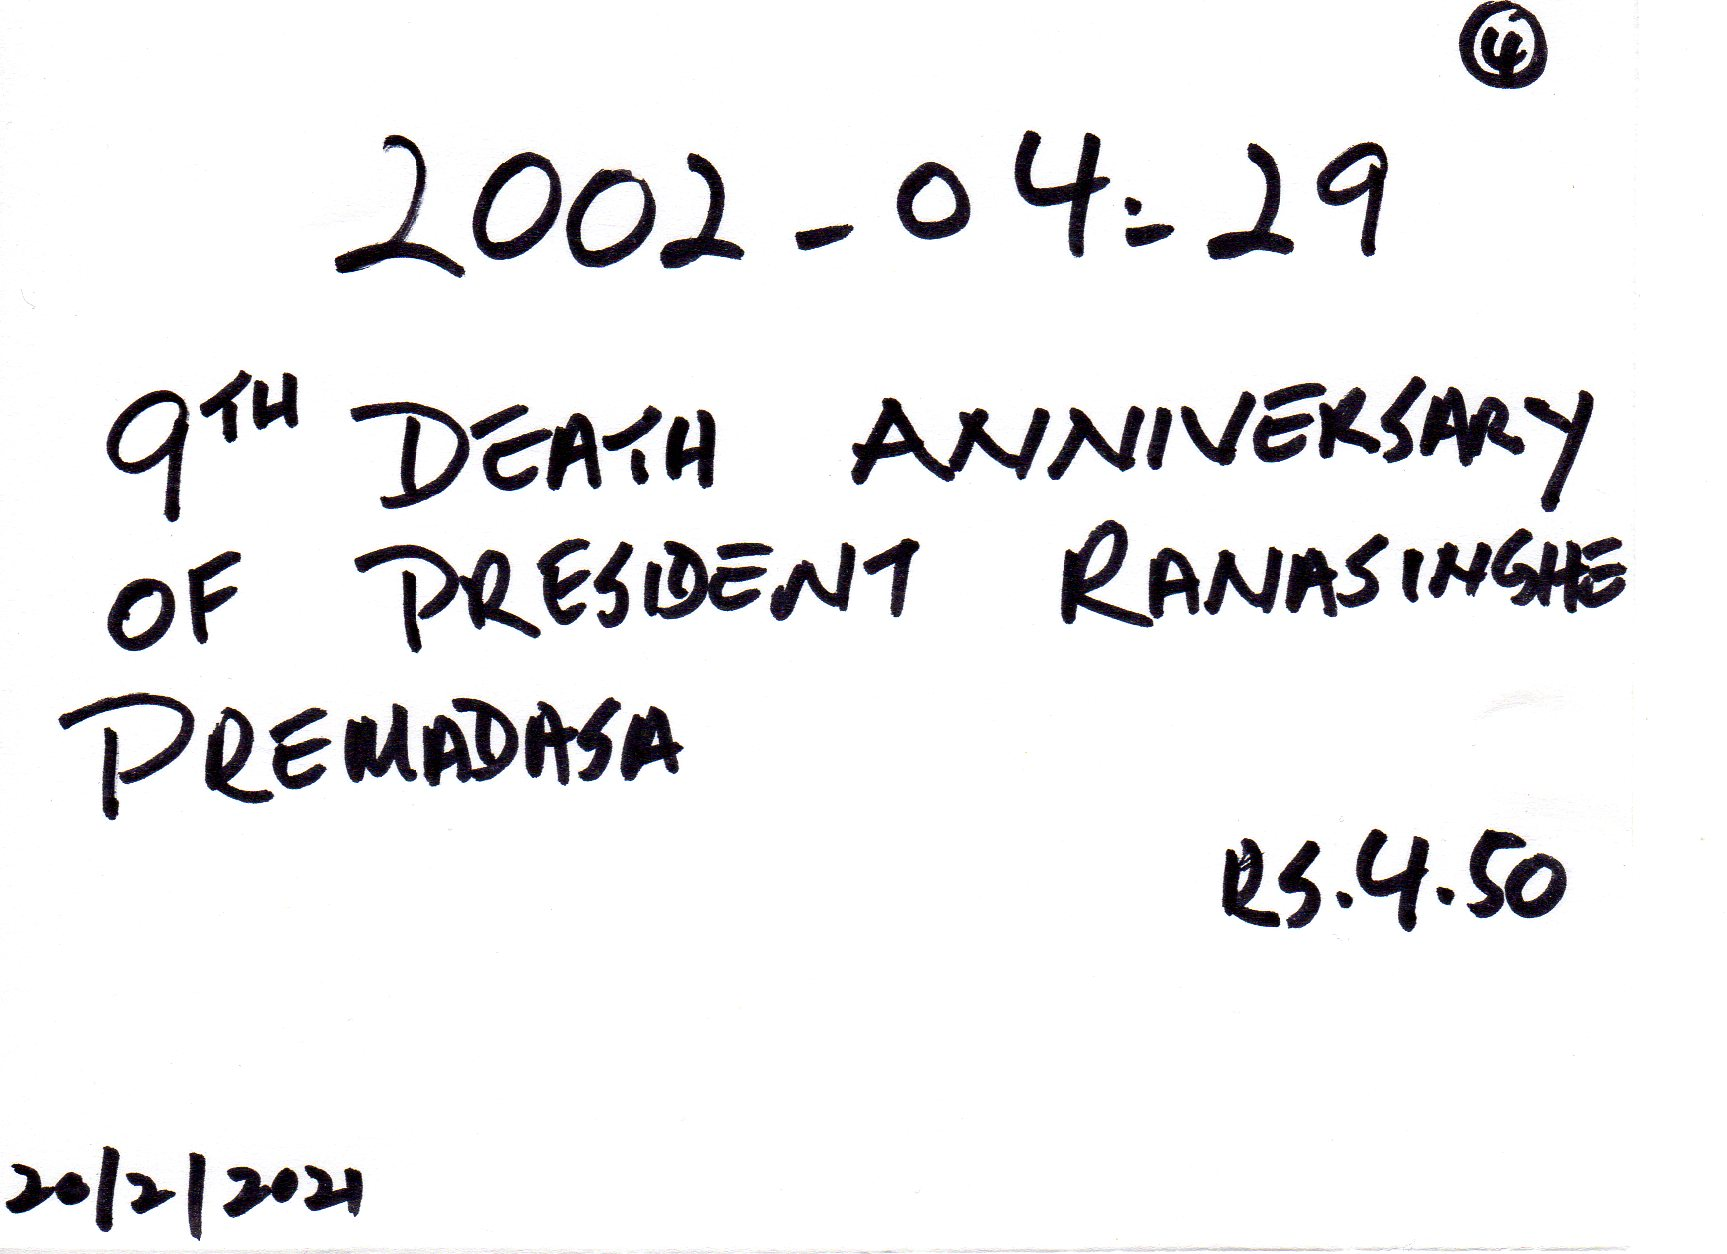 4
2002-04-29
9TH DEATH ANNIVERSARY
OF PRESIDENT RANASINGHE
PREMADASA
RS.4.50
20/2/2021